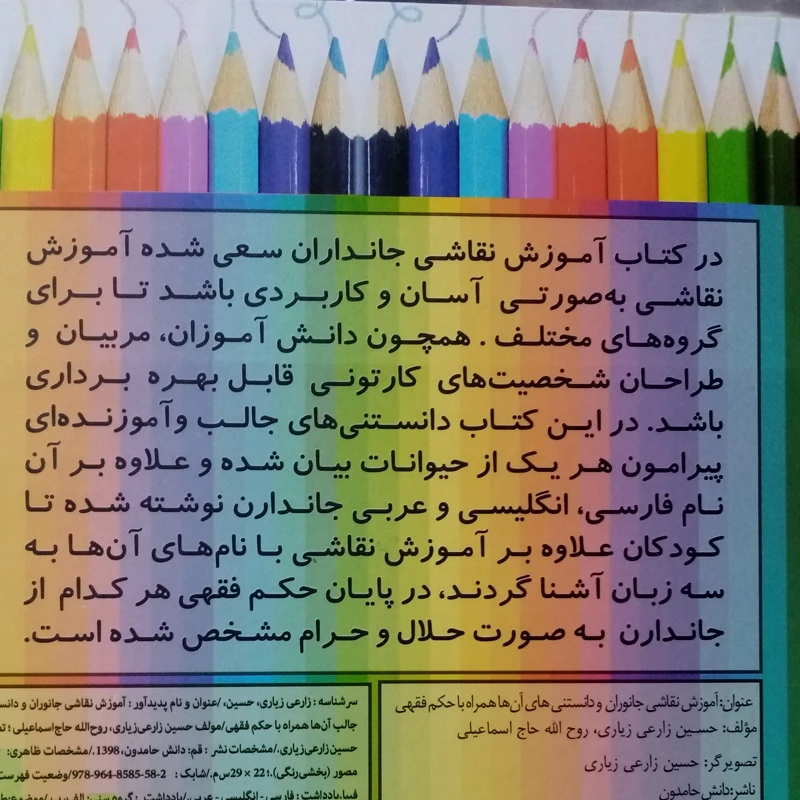 در کتاب آموزش نقاشی جانداران سعی شده آموزش
نقاشی به‌صورتی آسان و کاربردی باشد تا برای
گروه‌های مختلف . همچون دانش آموزان، مربیان و
طراحان شخصیت‌های کارتونی قابل بهره برداری
باشد. در این کتاب دانستنی‌های جالب وآموزنده‌ای
پیرامون هر یک از حیوانات بیان شده و علاوه بر آن
نام فارسی، انگلیسی و عربی جاندارن نوشته شده تا
کودکان علاوه بر آموزش نقاشی با نام‌های آن‌ها به
سه زبان آشنا گردند، در پایان حکم فقهی هر کدام از
جاندارن به صورت حلال و حرام مشخص شده است.
عنوان:آموزش نقاشی جانوران ودانستنی های آن‌ها همراه با حکم فقهی
مؤلف: حسین زارعی زیاری، روح الله حاج اسماعیلی
تصویرگر: حسین زارعی زیاری
ناشر:دانش حامدون
سرشناسه : زارعی زیاری، حسین، /عنوان و نام پدیدآور : آموزش نقاشی جانوران و
جالب آن‌ها همراه با حکم فقهی/مولف حسین زارعی‌زیاری، روح‌الله حاج‌اسماعیلی ؛
حسین‌زارعی‌زیاری./مشخصات نشر : قم: دانش حامدون، 1398./مشخصات ظاهری:
مصور (بخشی‌رنگی).؛ 22 × 29س‌م./شابک : 978-964-8585-58-2/وضعیت فهرست
فیپا.یادداشت : فارسی - انگلیسی - عربی./یادداشت : گروه سنی: الف،ب.